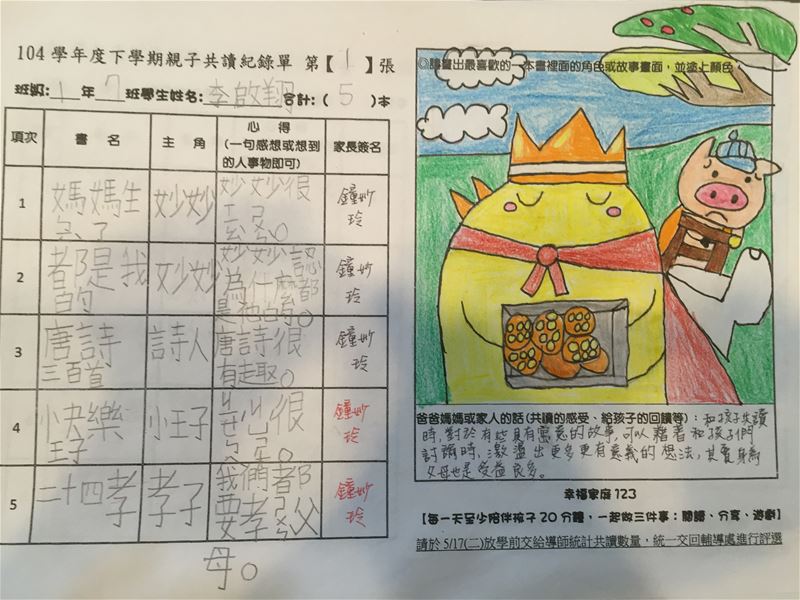 104 學年度下學期親子共讀紀錄單 第【1】張
班級: 1 年 7 班學生姓名: 李啟翔 合計:( 5 )本
項次 書 名 主 角 心 得 家長簽名
(一句感想或想到
的人事物即可)
1 媽媽生 妙妙 妙妙很 鐘妙
氣了 玲
2 都是我 妙妙 妙妙認 鐘妙
的 為什麼都 玲
是他的。
3 唐詩 詩人 唐詩很 鐘妙
三百首 有走取。 玲
4 小快樂 小王子 很 鐘妙
王子 玲
5 二十四孝 孝子 我們都 鐘妙
要孝ㄕㄨㄣˋ父 玲
母。
◎請畫出最喜歡的一本書裡面的角色或故事畫面,並塗上顏色。
爸爸媽媽或家人的話(共讀的感受、給孩子的回饋等):和孩子共讀
時,對於有些具有寓意的故事,可以藉著和孩子們
討論時,激盪出更多更有意義的想法,其實身為
父母也是受益良多。
幸福家庭 123
【每一天至少陪伴孩子 20 分鐘,一起做三件事:閱讀、分享、遊戲】
請於 5/17(二)放學前交給導師統計共讀數量,統一交回輔導處進行評選